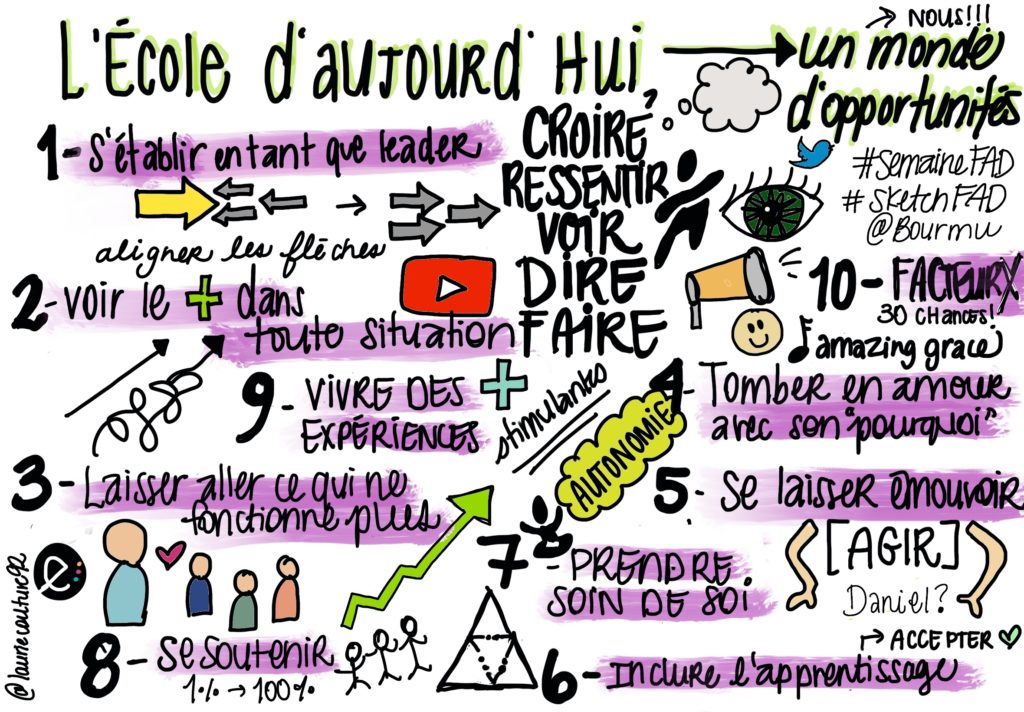 L'École d'aujourd'hui
NOUS!!!
un monde
d'opportunités
#SemaineFAD
#SketchFAD
@Bourmu
CROIRE
RESSENTIR
VOIR
DIRE
FAIRE
1- S'établir en tant que leader
aligner les flèches
2- voir le + dans
toute situation
3- Laisser aller ce qui ne
fonctionne plus
4- Tomber en amour
avec son "pourquoi"
5- Se laisser émouvoir
[AGIR]
Daniel?
6- Inclure l'apprentissage
ACCEPTER
7- PRENDRE
SOIN DE SOI
8- Se soutenir
1% → 100%
9- VIVRE DES +
EXPÉRIENCES
stimulanks
AUTONOMIE
10- FACTEUR X
30 CHANCES!
amazing grace
e